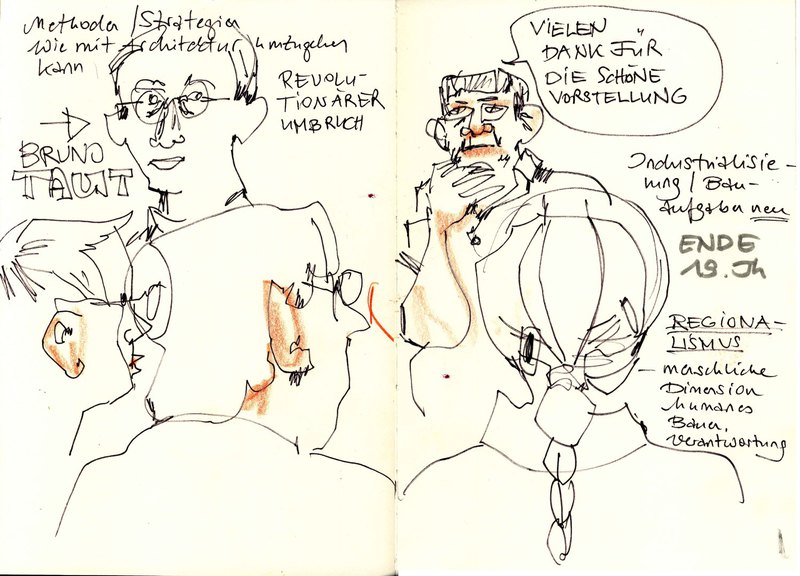 Methoden / Strategien
wie mit Architektur umzugehen
kann
REVOLU-
TIONÄRER
UMBRUCH
BRUNO
TAUT
VIELEN
DANK FÜR
DIE SCHÖNE
VORSTELLUNG
Industrialisie-
rung / Bau-
Aufgaben neu
ENDE
19. Jh
REGIONA-
LISMUS
– menschliche
Dimension
humanes
Bauen,
Verantwortung